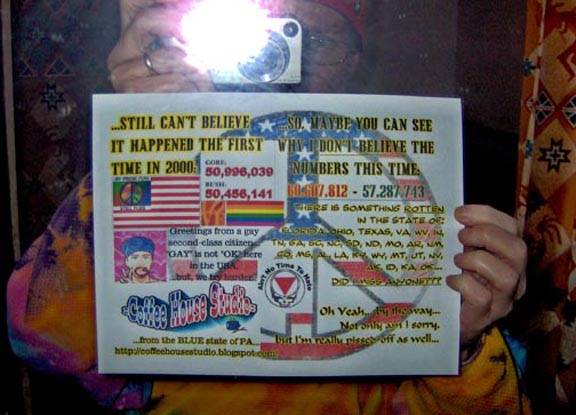 ...STILL CAN'T BELIEVE
IT HAPPENED THE FIRST
TIME IN 2000:
GORE:
50,996,039
BUSH:
50,456,141
Greetings from a gay
second-class citizen.
"GAY" is not "OK" here
in the USA.
...but, we try harder!
Coffee House Studio
...from the BLUE state of PA...
http://coffeehousestudio.blogspot.com
...SO, MAYBE YOU CAN SEE
WHY I DON'T BELIEVE THE
NUMBERS THIS TIME:
60,607,812 - 57,287,743
THERE IS SOMETHING ROTTEN
IN THE STATE OF:
FLORIDA, OHIO, TEXAS, VA, WV, IN,
TN, GA, SC, NC, SD, ND, MO, AR, NM
CO, MS, AL, LA, KY, WY, MT, UT, NV,
AK, ID, KA, OK...
DID I MISS ANYONE???
Ain't No Time To Hate
Oh Yeah... by the way...
Not only am I sorry,
but I'm really pissed-off as well...